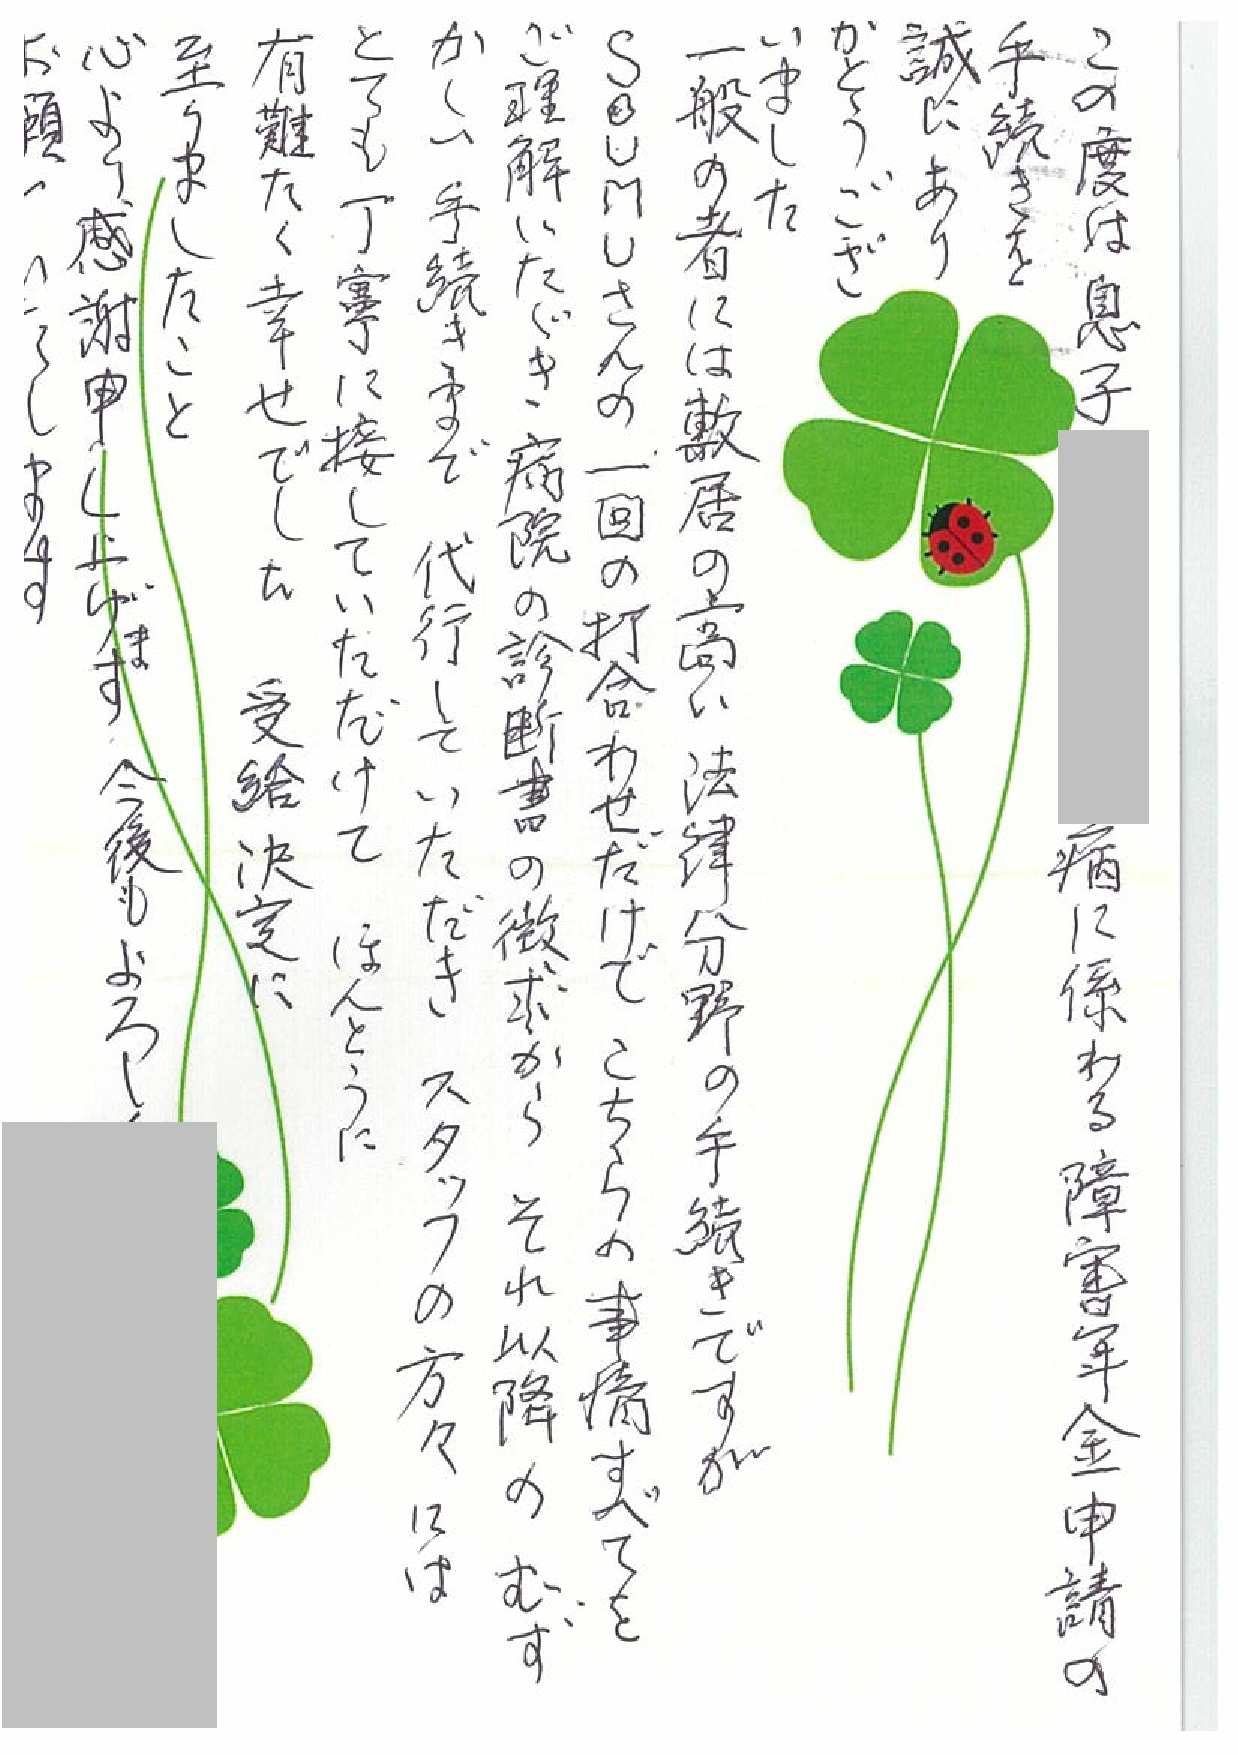 この度は息子
病に係わる障害年金申請の
手続きを
誠にあり
がとうござ
いました
一般の者には敷居の高い法律分野の手続きですが
SOUMUさんの一回の打合わせだけでこちらの事情すべてを
ご理解いただき、病院の診断書の徴求からそれ以降のむず
かしい手続きまで代行していただきスタッフの方々には
とても丁寧に接していただけてほんとうに
有難たく幸せでした 受給決定に
至りましたこと
心より感謝申し上げます 今後もよろしく
お願い いたします